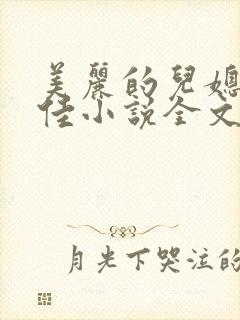 美麗的兒媳
佳小说全文
月光下哭泣的